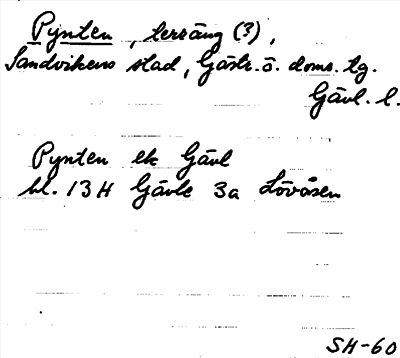 Pynten, terräng (?),
Sandvikens stad, Gästr. ö. doms. tg.
Gävl. l.
Pynten ek Gävl
bl. 13H Gävle 3a Lövåsen
SH-60